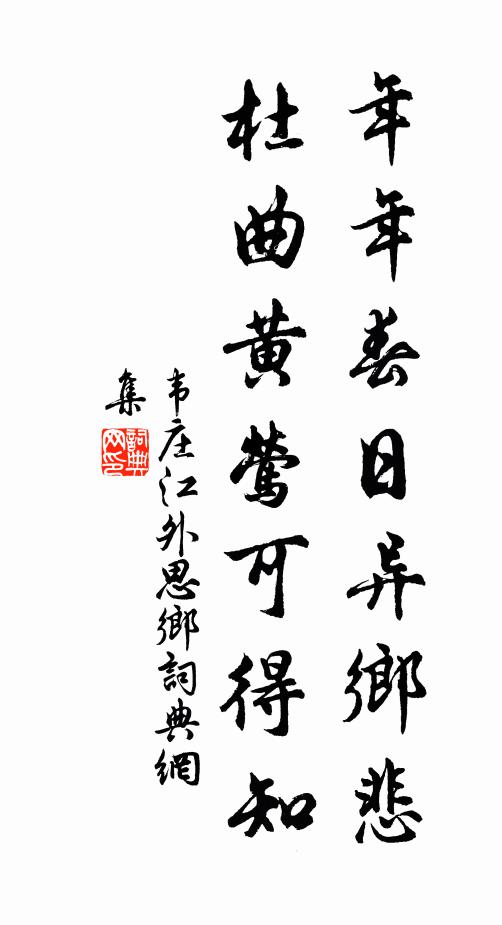 年年春日异鄉悲
杜曲黄莺可得知
韦庄江外思鄉詞典網
集
詞典
网印